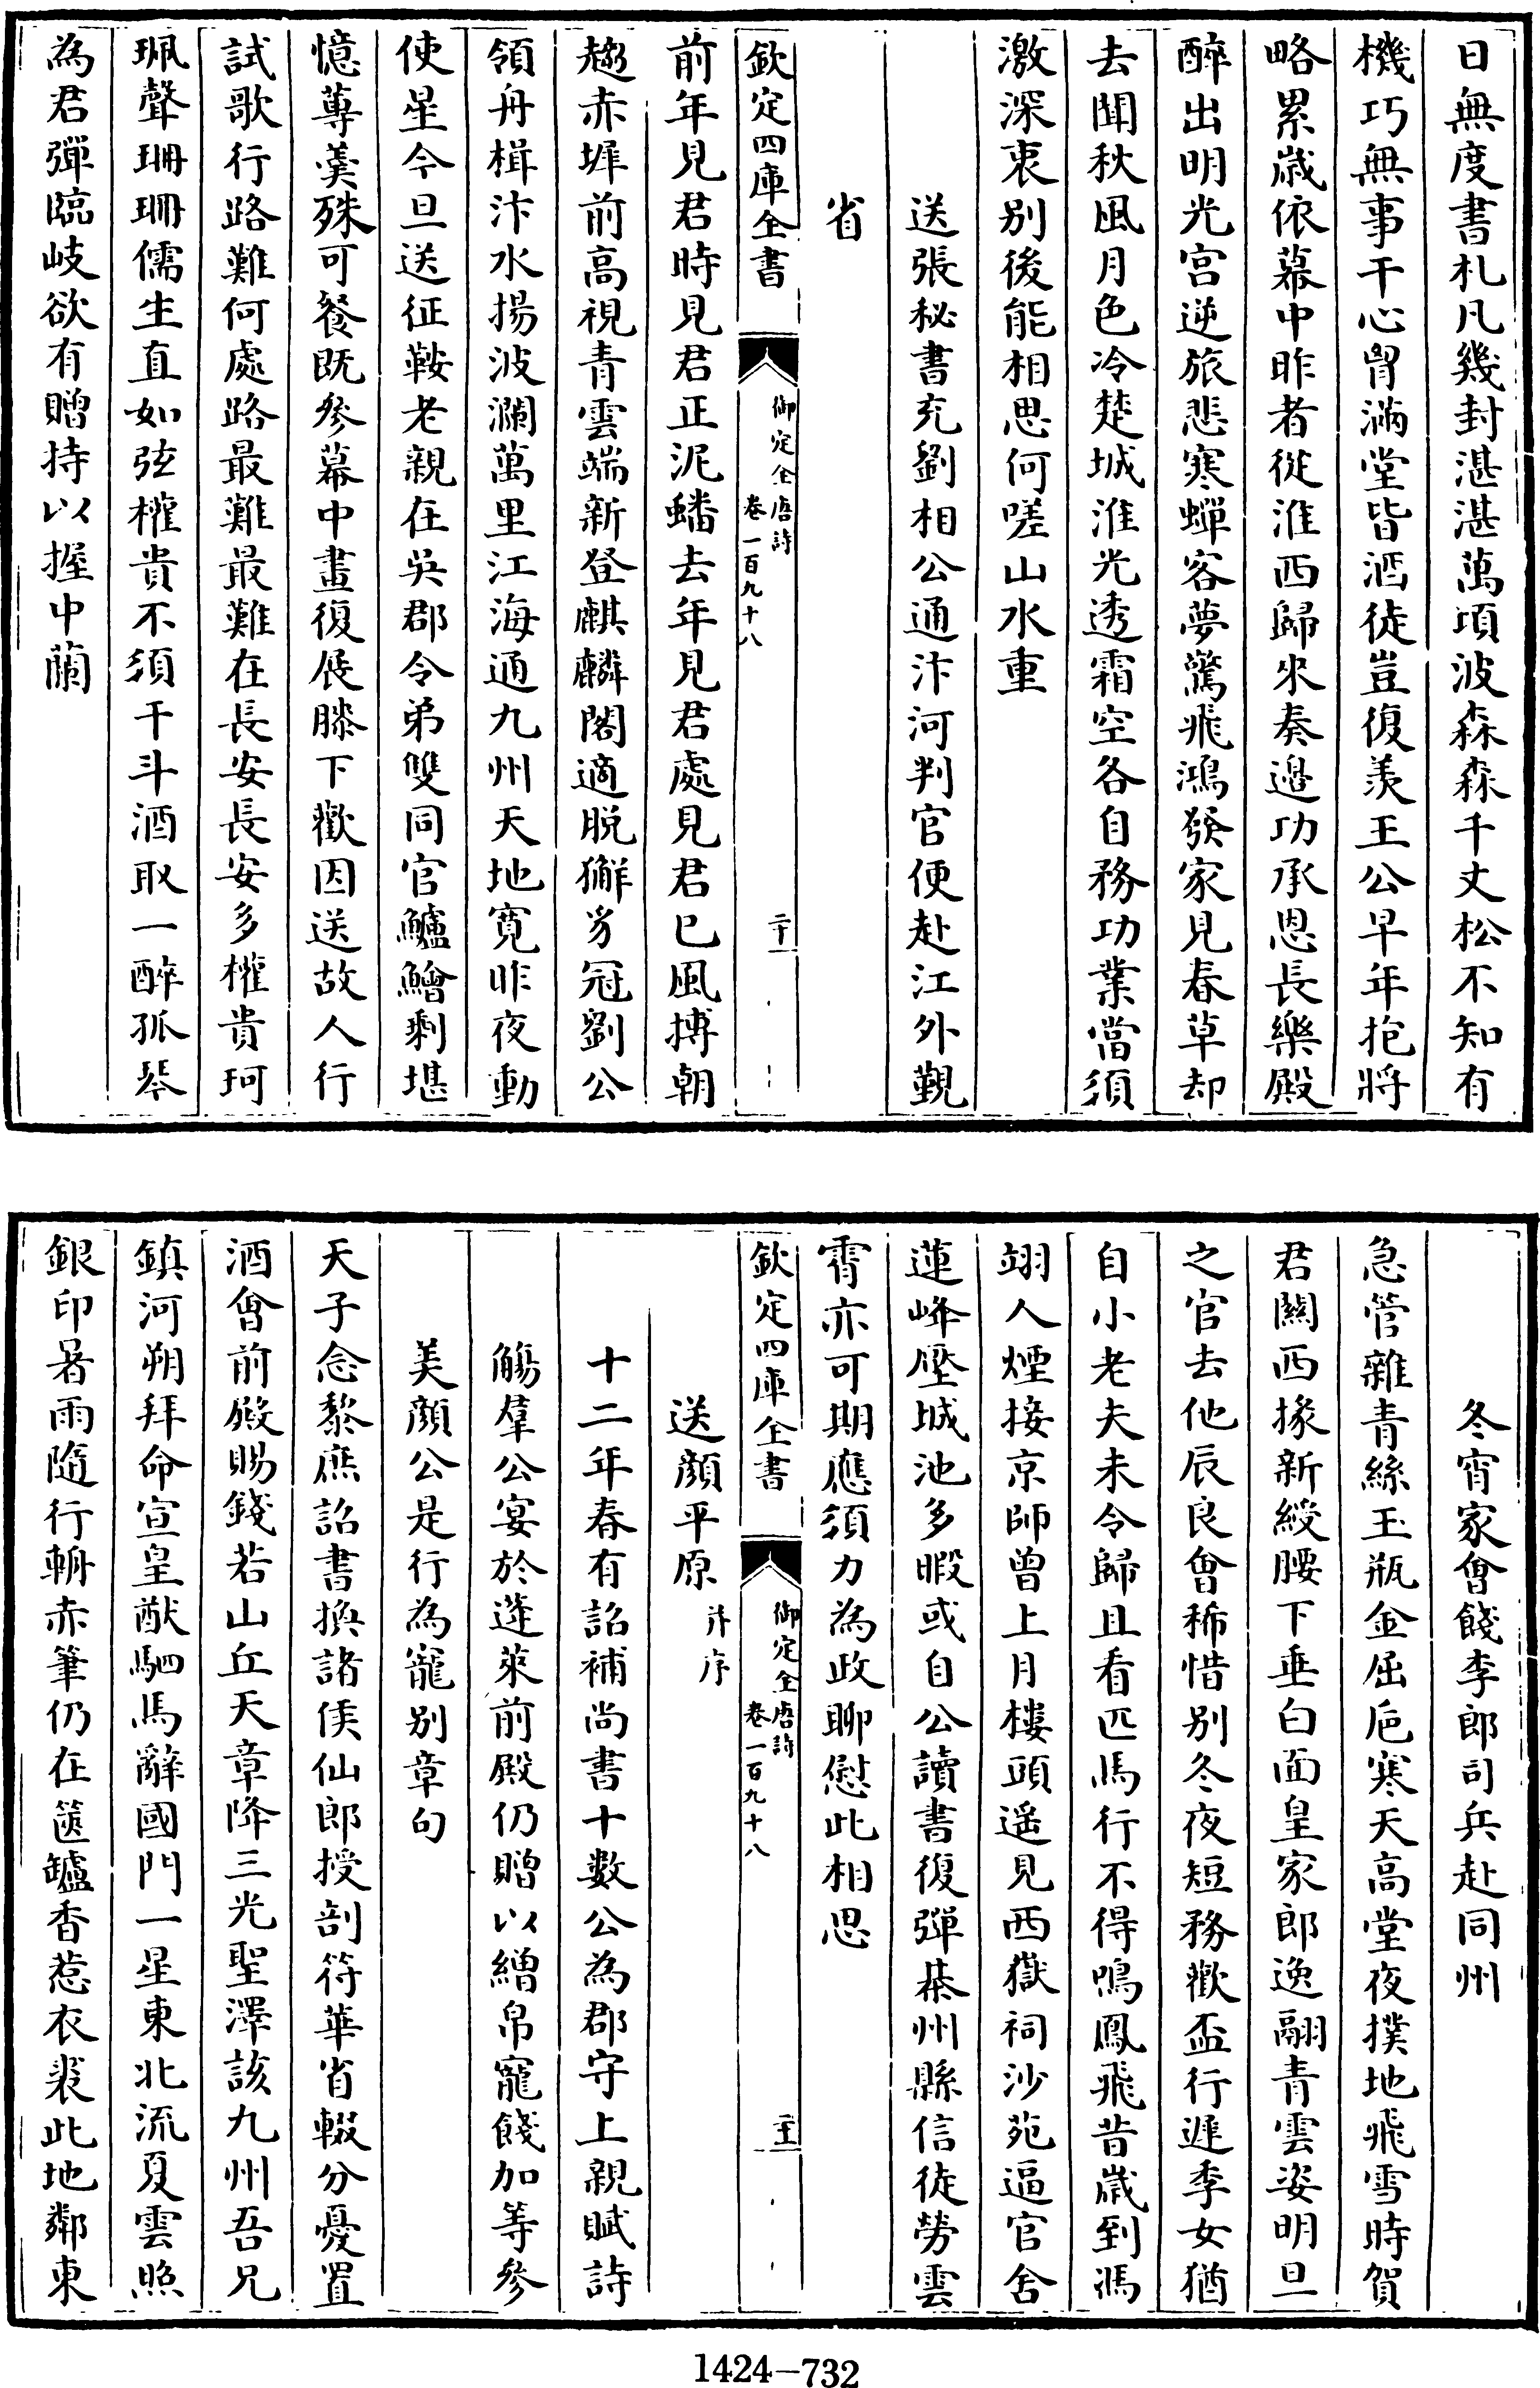 日無度書札凡幾封湛湛萬頃波森森千丈松不知有
機巧無事干心胷滿堂皆酒徒豈復羨王公早年抱將
略累歲依幕中昨者從淮西歸來奏邉功承恩長樂殿
醉出明光宫逆旅悲寒蟬客夢驚飛鴻發家見春草却
去聞秋風月色冷楚城淮光透霜空各自務功業當須
激深衷别後能相思何嗟山水重
送張秘書充劉相公通汴河判官便赴江外覲
省
欽定四庫全書
御定全唐詩
卷一百九十八
二十
前年見君時見君正泥蟠去年見君處見君已風搏朝
趨赤墀前高視青雲端新登麒麟閣適脱獬豸冠劉公
領舟楫汴水揚波瀾萬里江海通九州天地寛昨夜動
使星今旦送征鞍老親在吳郡令弟雙同官鱸鱠剩堪
憶蓴羮殊可餐既參幕中畫復展膝下歡因送故人行
試歌行路難何處路最難最難在長安長安多權貴珂
珮聲珊珊儒生直如弦權貴不須干斗酒取一醉孤琴
為君彈臨岐欲有贈持以握中蘭
冬宵家㑹餞李郎司兵赴同州
急管雜青絲玉瓶金屈巵寒天高堂夜撲地飛雪時賀
君闗西掾新綬腰下垂白面皇家郎逸翮青雲姿明旦
之官去他辰良㑹稀惜别冬夜短務歡盃行遲季女猶
自小老夫未令歸且看匹馬行不得鳴鳳飛昔歲到馮
翊人煙接京師曾上月樓頭遥見西嶽祠沙苑逼官舍
蓮峰壓城池多暇或自公讀書復彈棊州縣信徒勞雲
霄亦可期應須力為政聊慰此相思
欽定四庫全書
御定全唐詩
卷一百九十八
二十一
送顔平原并序
十二年春有詔補尚書十數公為郡守上親賦詩
觴羣公宴於蓬萊前殿仍贈以繒帛寵餞加等參
美顔公是行為寵别章句
天子念黎庶詔書換諸侯仙郎授剖符華省輟分憂置
酒㑹前殿賜錢若山丘天章降三光聖澤該九州吾兄
鎮河朔拜命宣皇猷駟馬辭國門一星東北流夏雲照
銀印暑雨隨行輈赤筆仍在篋罏香惹衣裘此地鄰東
1424-732